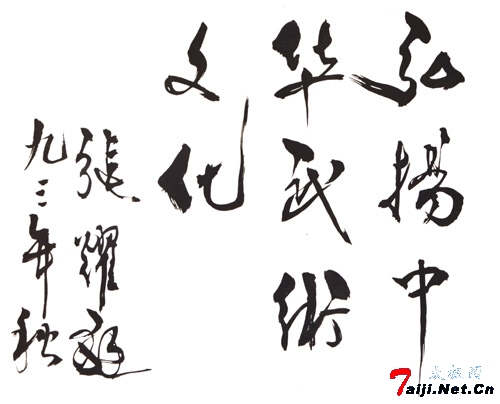 弘揚中
华武術
文化
張耀庭
九三年秋
太极网
Taiji.Net.Cn